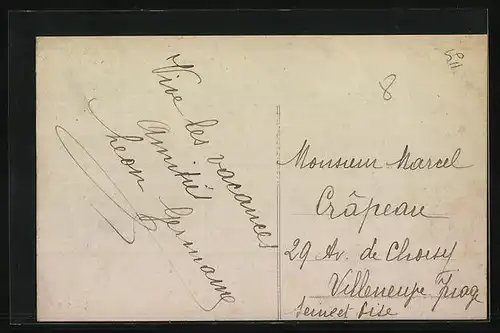 Vive les vacances
amitiés
Léon Germaine
8
Monsieur Marcel
Crâpeau
29 Av. de Choisy
Villeneuve
Seine et Oise